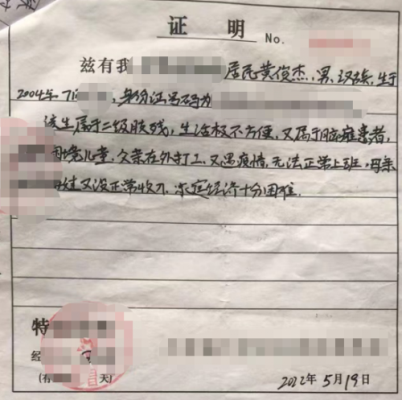 证 明
No.
兹有我 居民黄俊杰,男,汉族,生于
2004年7 ,身份证号码为
该生属于二级肢残,生活极不方便,又属于脑瘫患者,
儿童,父亲在外打工,又遇疫情,无法正常上班,母亲
又没正常收入,家庭经济十分困难.
特
经
(有 天)
2022年5月19日